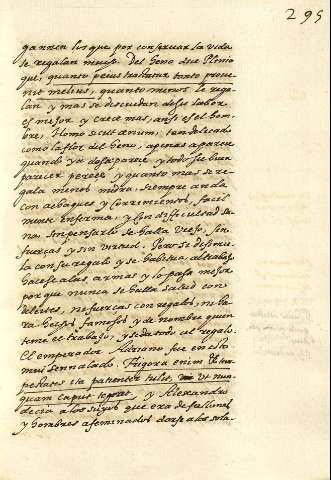 295
gannen los que por conseruar la vida
se regalan mucho. Del heno dize Plinio
que, quanto peius tractatur tanto proue
nit melius, quanto menos le rega
lan y mas se descuidan dose labor
es mejor y crece mas, ansi es el hom
bre, Homo sicut œnum, tan delicado
como la flor del heno, apenas aparece
quando ya desaparece y todo su buen
parecer perece y quanto mas se re
gala menos medra, siempre anda
con achaques y corrimientos, facil
mente enferma, y con difficultad sa
na, sin pensarlo se halla viejo, sin
fuerças y sin virtud. Pero se
la con su regalo y se habitua al trabajo
hacese a las armas y lo pasa mejor
porque nunca se halla salud con
deleites, ni fuerças con regalos, ni ha
ra hechos famosos y de nombre quien
teme el trabajo, y se da todo al regalo.
El emperador Adriano fue en esto
mui sennalado. frigora enim &
pestates ita patienter tulit, ut nun
quam caput tegeret, y Alexandro
decia a los suyos que era de
y hombres afeminados darse a los